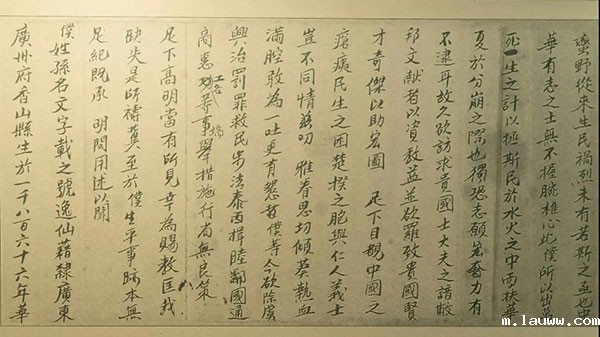 蠻野從來生民禍烈未有若斯之亟也
華有志之士無不握腕椎心此僕所以出萬
死一生之計以拯斯民於水火之中而扶華
夏於分崩之際也獨恐志願宏奢力有
不逮耳故久欲訪求貴國士大夫之諳敝
邦文獻者以資教益並欲羅致貴國賢
才奇傑以助宏圖 足下目覩中國之
瘡痍民生之困楚揆之胞與仁人義士
豈不同情茲叨 雅眷思切傾葵熱血
滿腔敢為一吐更有懇者僕等今欲除虜
興治罰罪救民步法泰西揖睦鄰國通
商惠工各等事端舉措施行尚無良策
足下高明當有所見幸為賜教匡我
缺失是所禱冀至於僕生平事跡本無
足紀既承 明問用述以聞
僕姓孫名文字載之號逸仙藉隸廣東
廣州府香山縣生於一千八百六十六年華
m.lauww.com